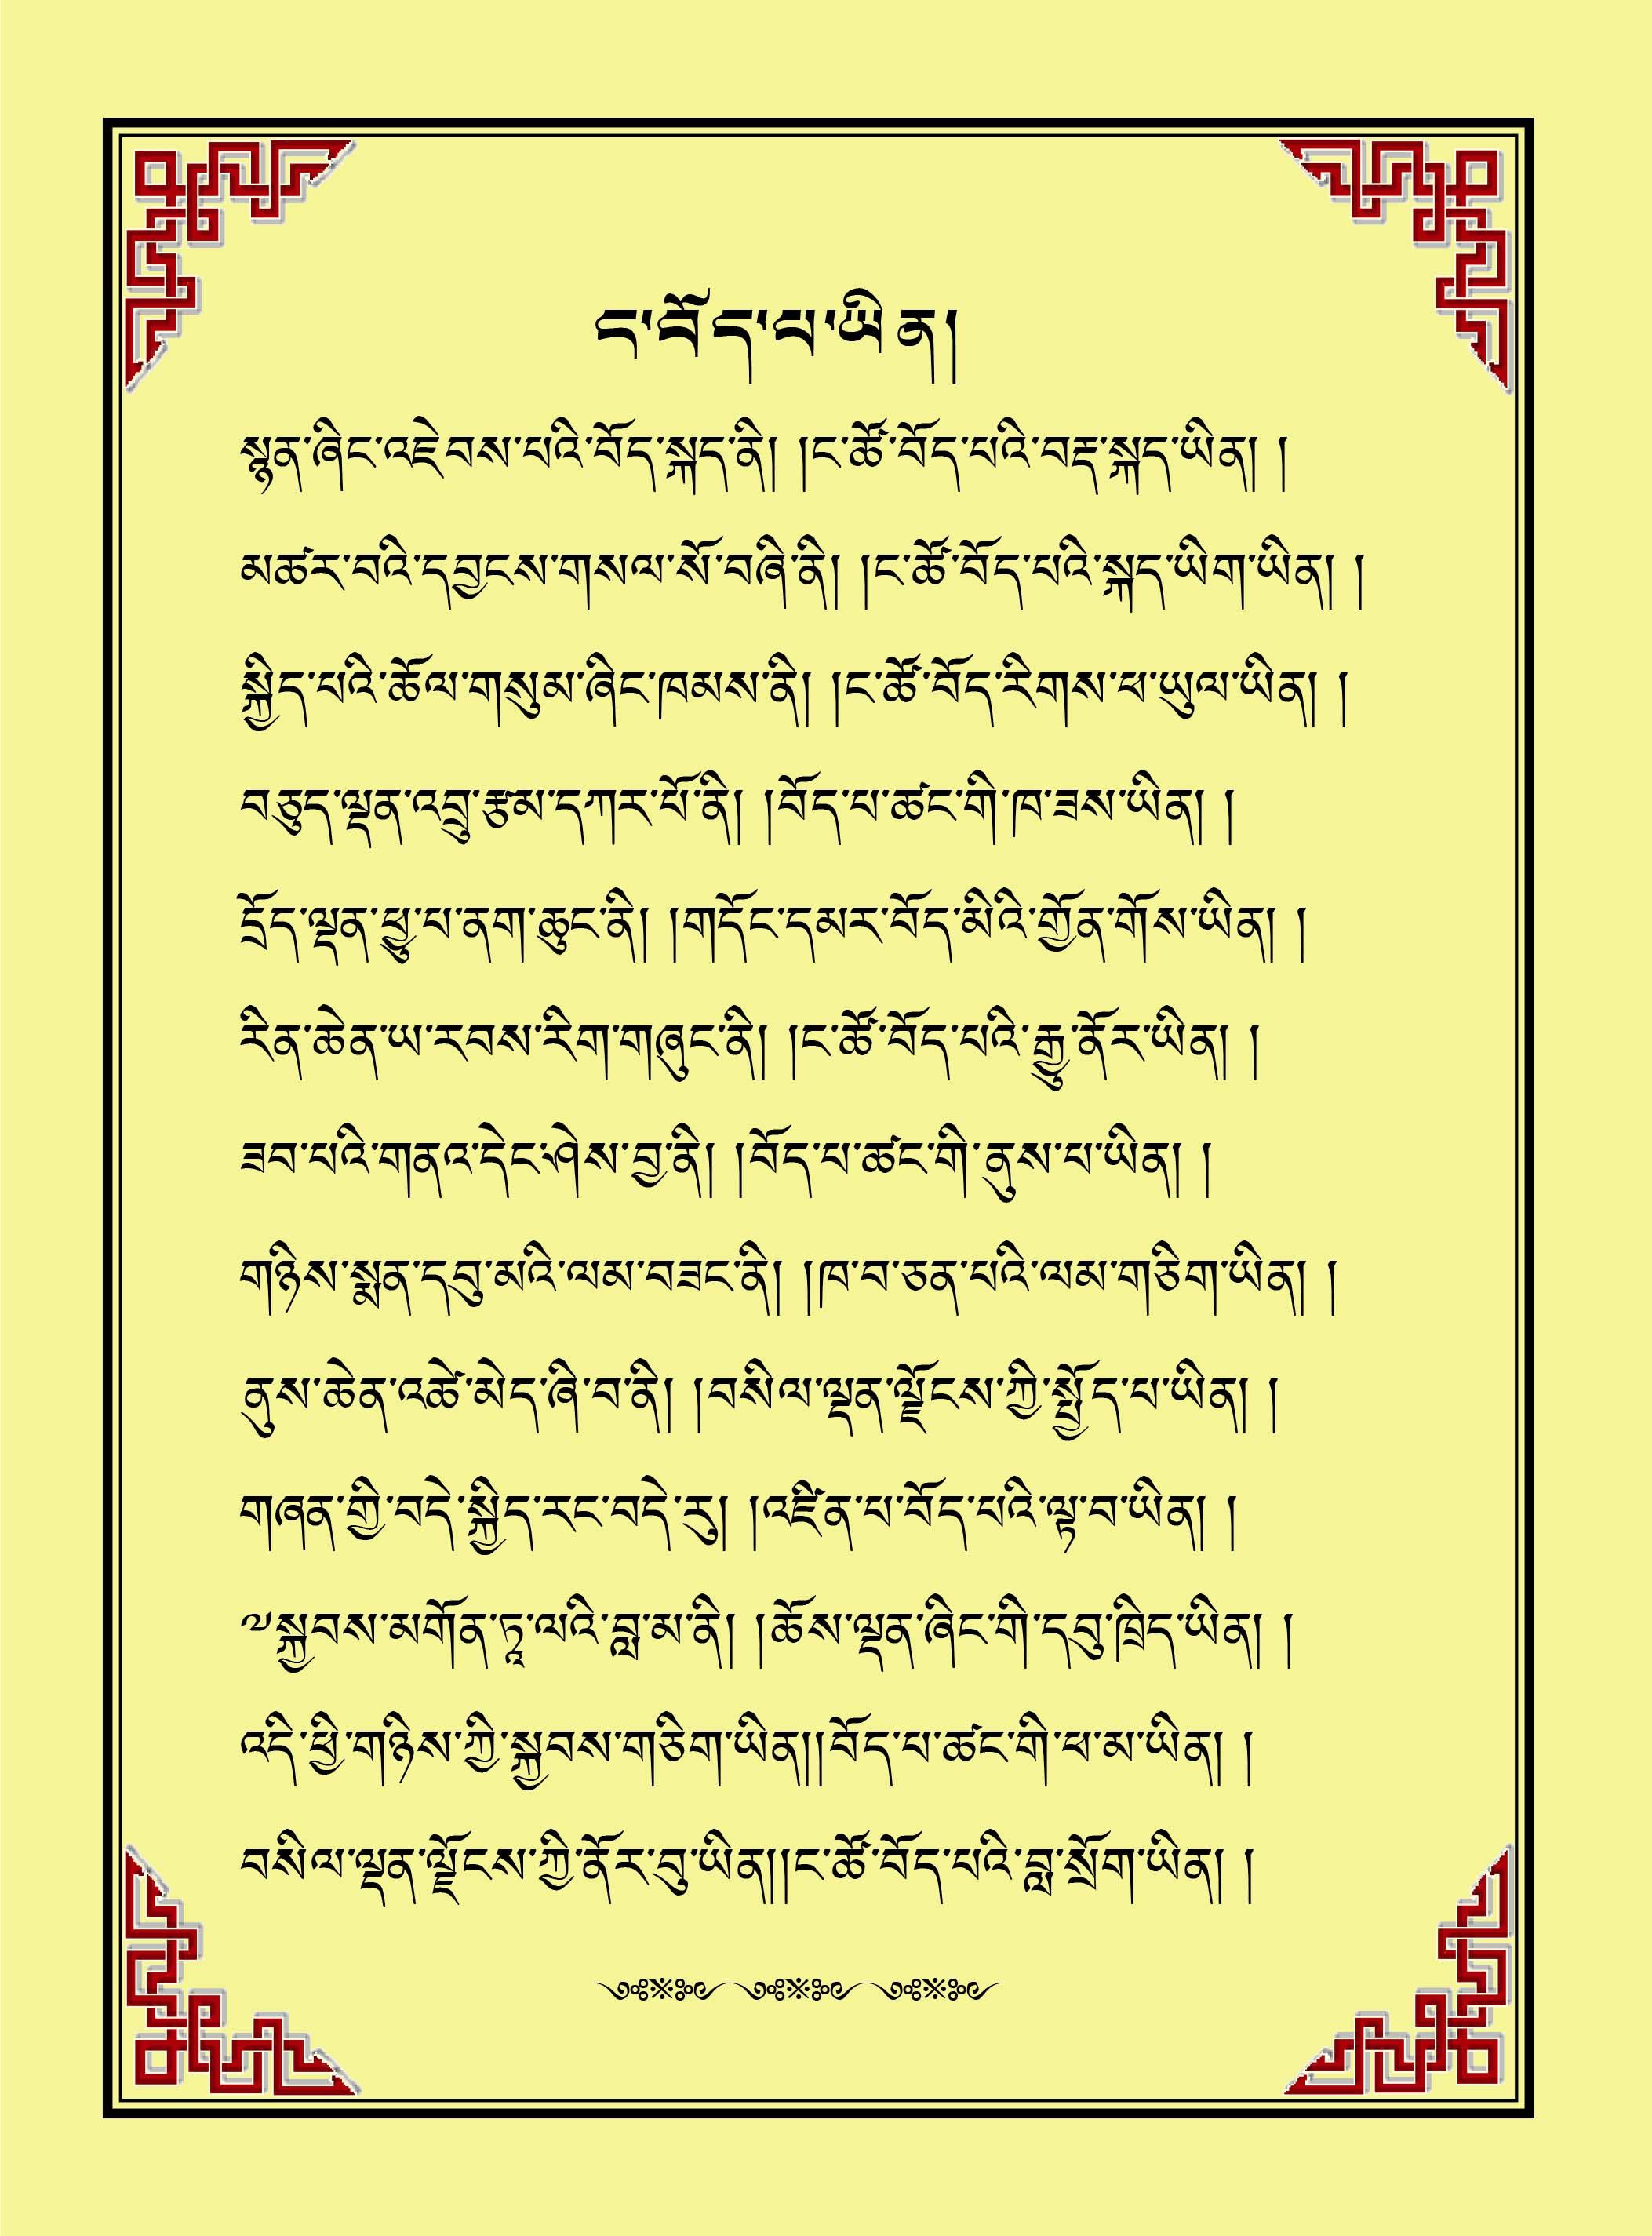 ང་བོད་པ་ཡིན།
སྙན་ཞིང་འཇེབས་པའི་བོད་སྐད་ནི། །ང་ཚོ་བོད་པའི་བརྡ་སྐད་ཡིན། །
མཚར་བའི་དབྱངས་གསལ་སོ་བཞི་ནི། །ང་ཚོ་བོད་པའི་སྐད་ཡིག་ཡིན། །
སྐྱིད་པའི་ཆོལ་གསུམ་ཞིང་ཁམས་ནི། །ང་ཚོ་བོད་རིགས་ཕ་ཡུལ་ཡིན། །
བཅུད་ལྡན་འབྲུ་རྩམ་དཀར་པོ་ནི། །བོད་པ་ཚང་གི་ཁ་ཟས་ཡིན། །
དྲོད་ལྡན་ཕྱུ་པ་ནག་ཆུང་ནི། །གདོང་དམར་བོད་མིའི་གྱོན་གོས་ཡིན། །
རིན་ཆེན་ཡ་རབས་རིག་གཞུང་ནི། །ང་ཚོ་བོད་པའི་རྒྱུ་ནོར་ཡིན། །
ཟབ་པའི་གནའ་དེང་ཤེས་བྱ་ནི། །བོད་པ་ཚང་གི་ནུས་པ་ཡིན། །
གཉིས་སྨན་དབུ་མའི་ལམ་བཟང་ནི། །ཁ་བ་ཅན་པའི་ལམ་གཅིག་ཡིན། །
ནུས་ཆེན་འཚེ་མེད་ཞི་བ་ནི། །བསིལ་ལྡན་ལྗོངས་ཀྱི་སྤྱོད་པ་ཡིན། །
གཞན་གྱི་བདེ་སྐྱིད་རང་བདེ་རུ། །འཛིན་པ་བོད་པའི་ལྟ་བ་ཡིན། །
༧སྐྱབས་མགོན་ཏཱ་ལའི་བླ་མ་ནི། །ཆོས་ལྡན་ཞིང་གི་དབུ་ཁྲིད་ཡིན། །
འདི་ཕྱི་གཉིས་ཀྱི་སྐྱབས་གཅིག་ཡིན།།བོད་པ་ཚང་གི་ཕ་མ་ཡིན། །
བསིལ་ལྡན་ལྗོངས་ཀྱི་ནོར་བུ་ཡིན།།ང་ཚོ་བོད་པའི་བླ་སྲོག་ཡིན། །